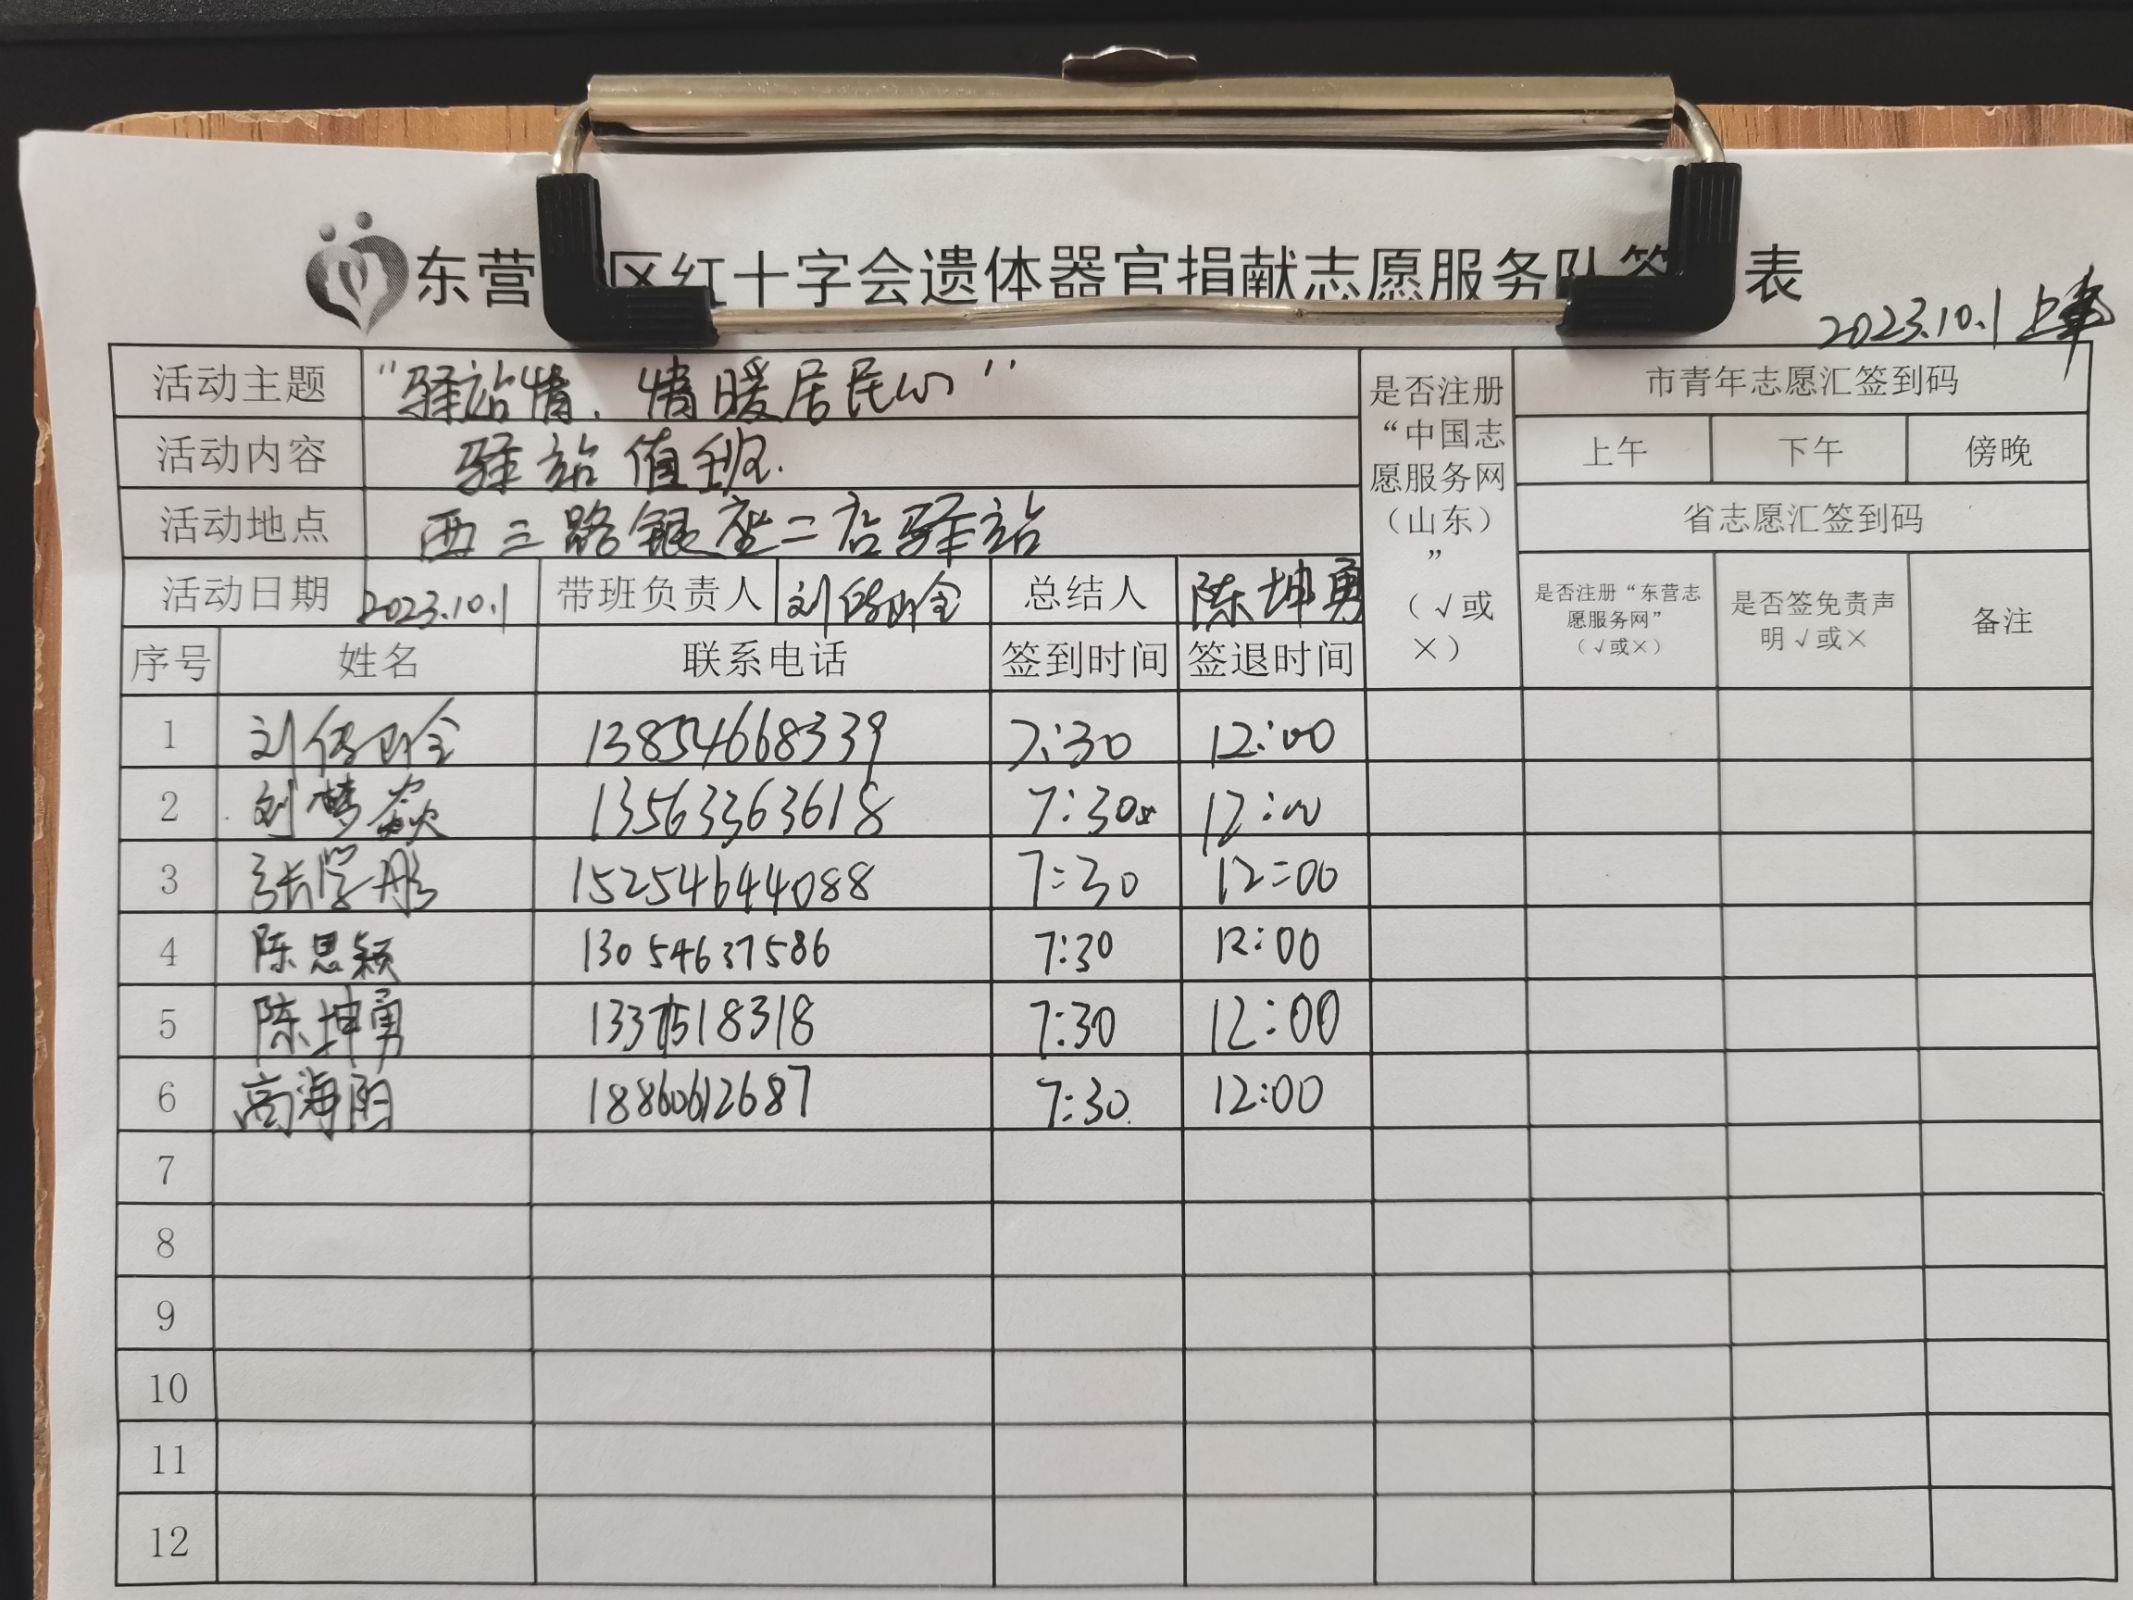 东营 区红十字会遗体器官捐献志愿服务队签 表
2023.10.1 上午
活动主题 “驿站情、情暖居民心” 是否注册“中国志愿服务网(山东)”(√或×) 市青年志愿汇签到码
活动内容 驿站值班. 上午 下午 傍晚
活动地点 西三路银座二店驿站 省志愿汇签到码
活动日期 2023.10.1 带班负责人 刘 总结人 陈坤勇 是否注册“东营志愿服务网”(√或×) 是否签免责声明√或× 备注
序号 姓名 联系电话 签到时间 签退时间
1 刘 13854668339 7:30 12:00
2 刘梦 13563363618 7:30 12:00
3 张学彤 15254644088 7:30 12:00
4 陈思颖 13054637586 7:30 12:00
5 陈坤勇 13371518318 7:30 12:00
6 高海阳 18860612687 7:30 12:00
7
8
9
10
11
12